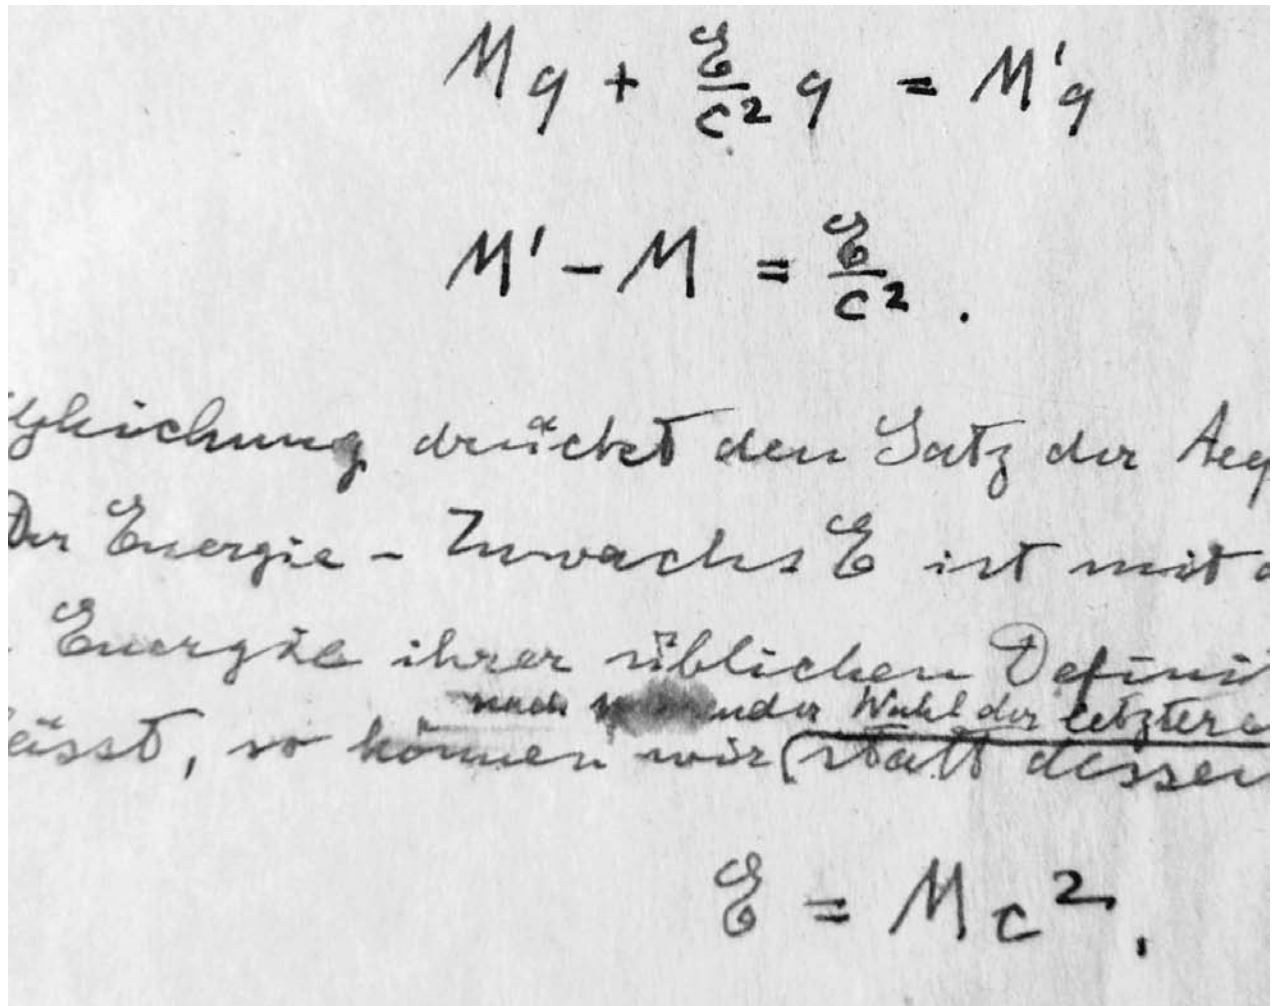 Mq + E/c² q = M'q
M' − M = E/c².
gleichung drückt den Satz der Aeq
Der Energie-Zuwachs E ist mit
Energie ihrer üblichen Defini
nach der Wahl der letztere
ässt, so können wir (statt dessen
E = Mc².